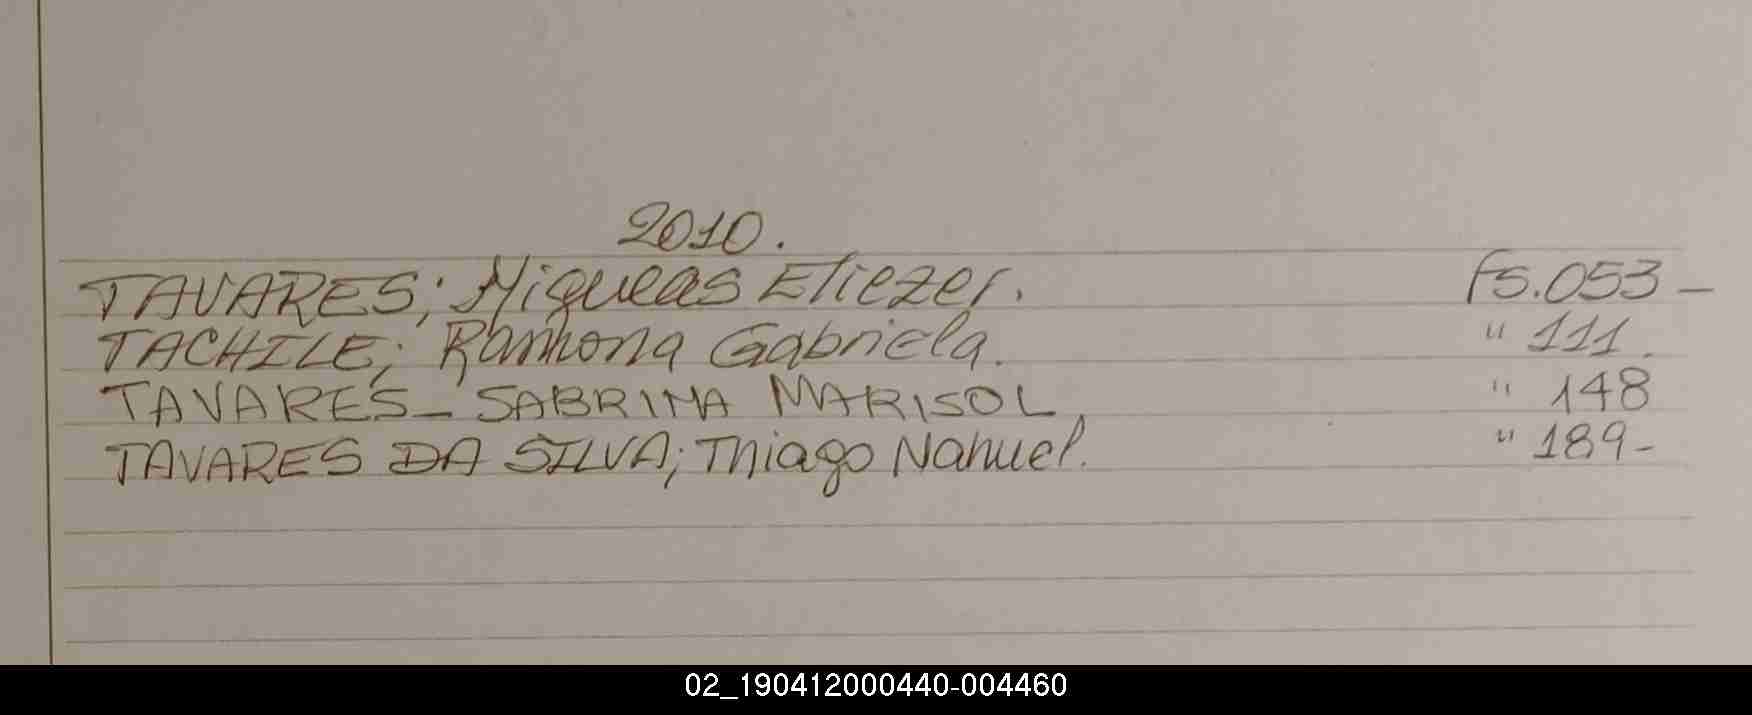 2010.
TAVARES; Miqueas Eliezer. fs.053-
TACHILE; Ramona Gabriela. " 111.
TAVARES_ SABRINA MARISOL " 148
TAVARES DA SILVA; Thiago Nahuel. " 189-
02_190412000440-004460